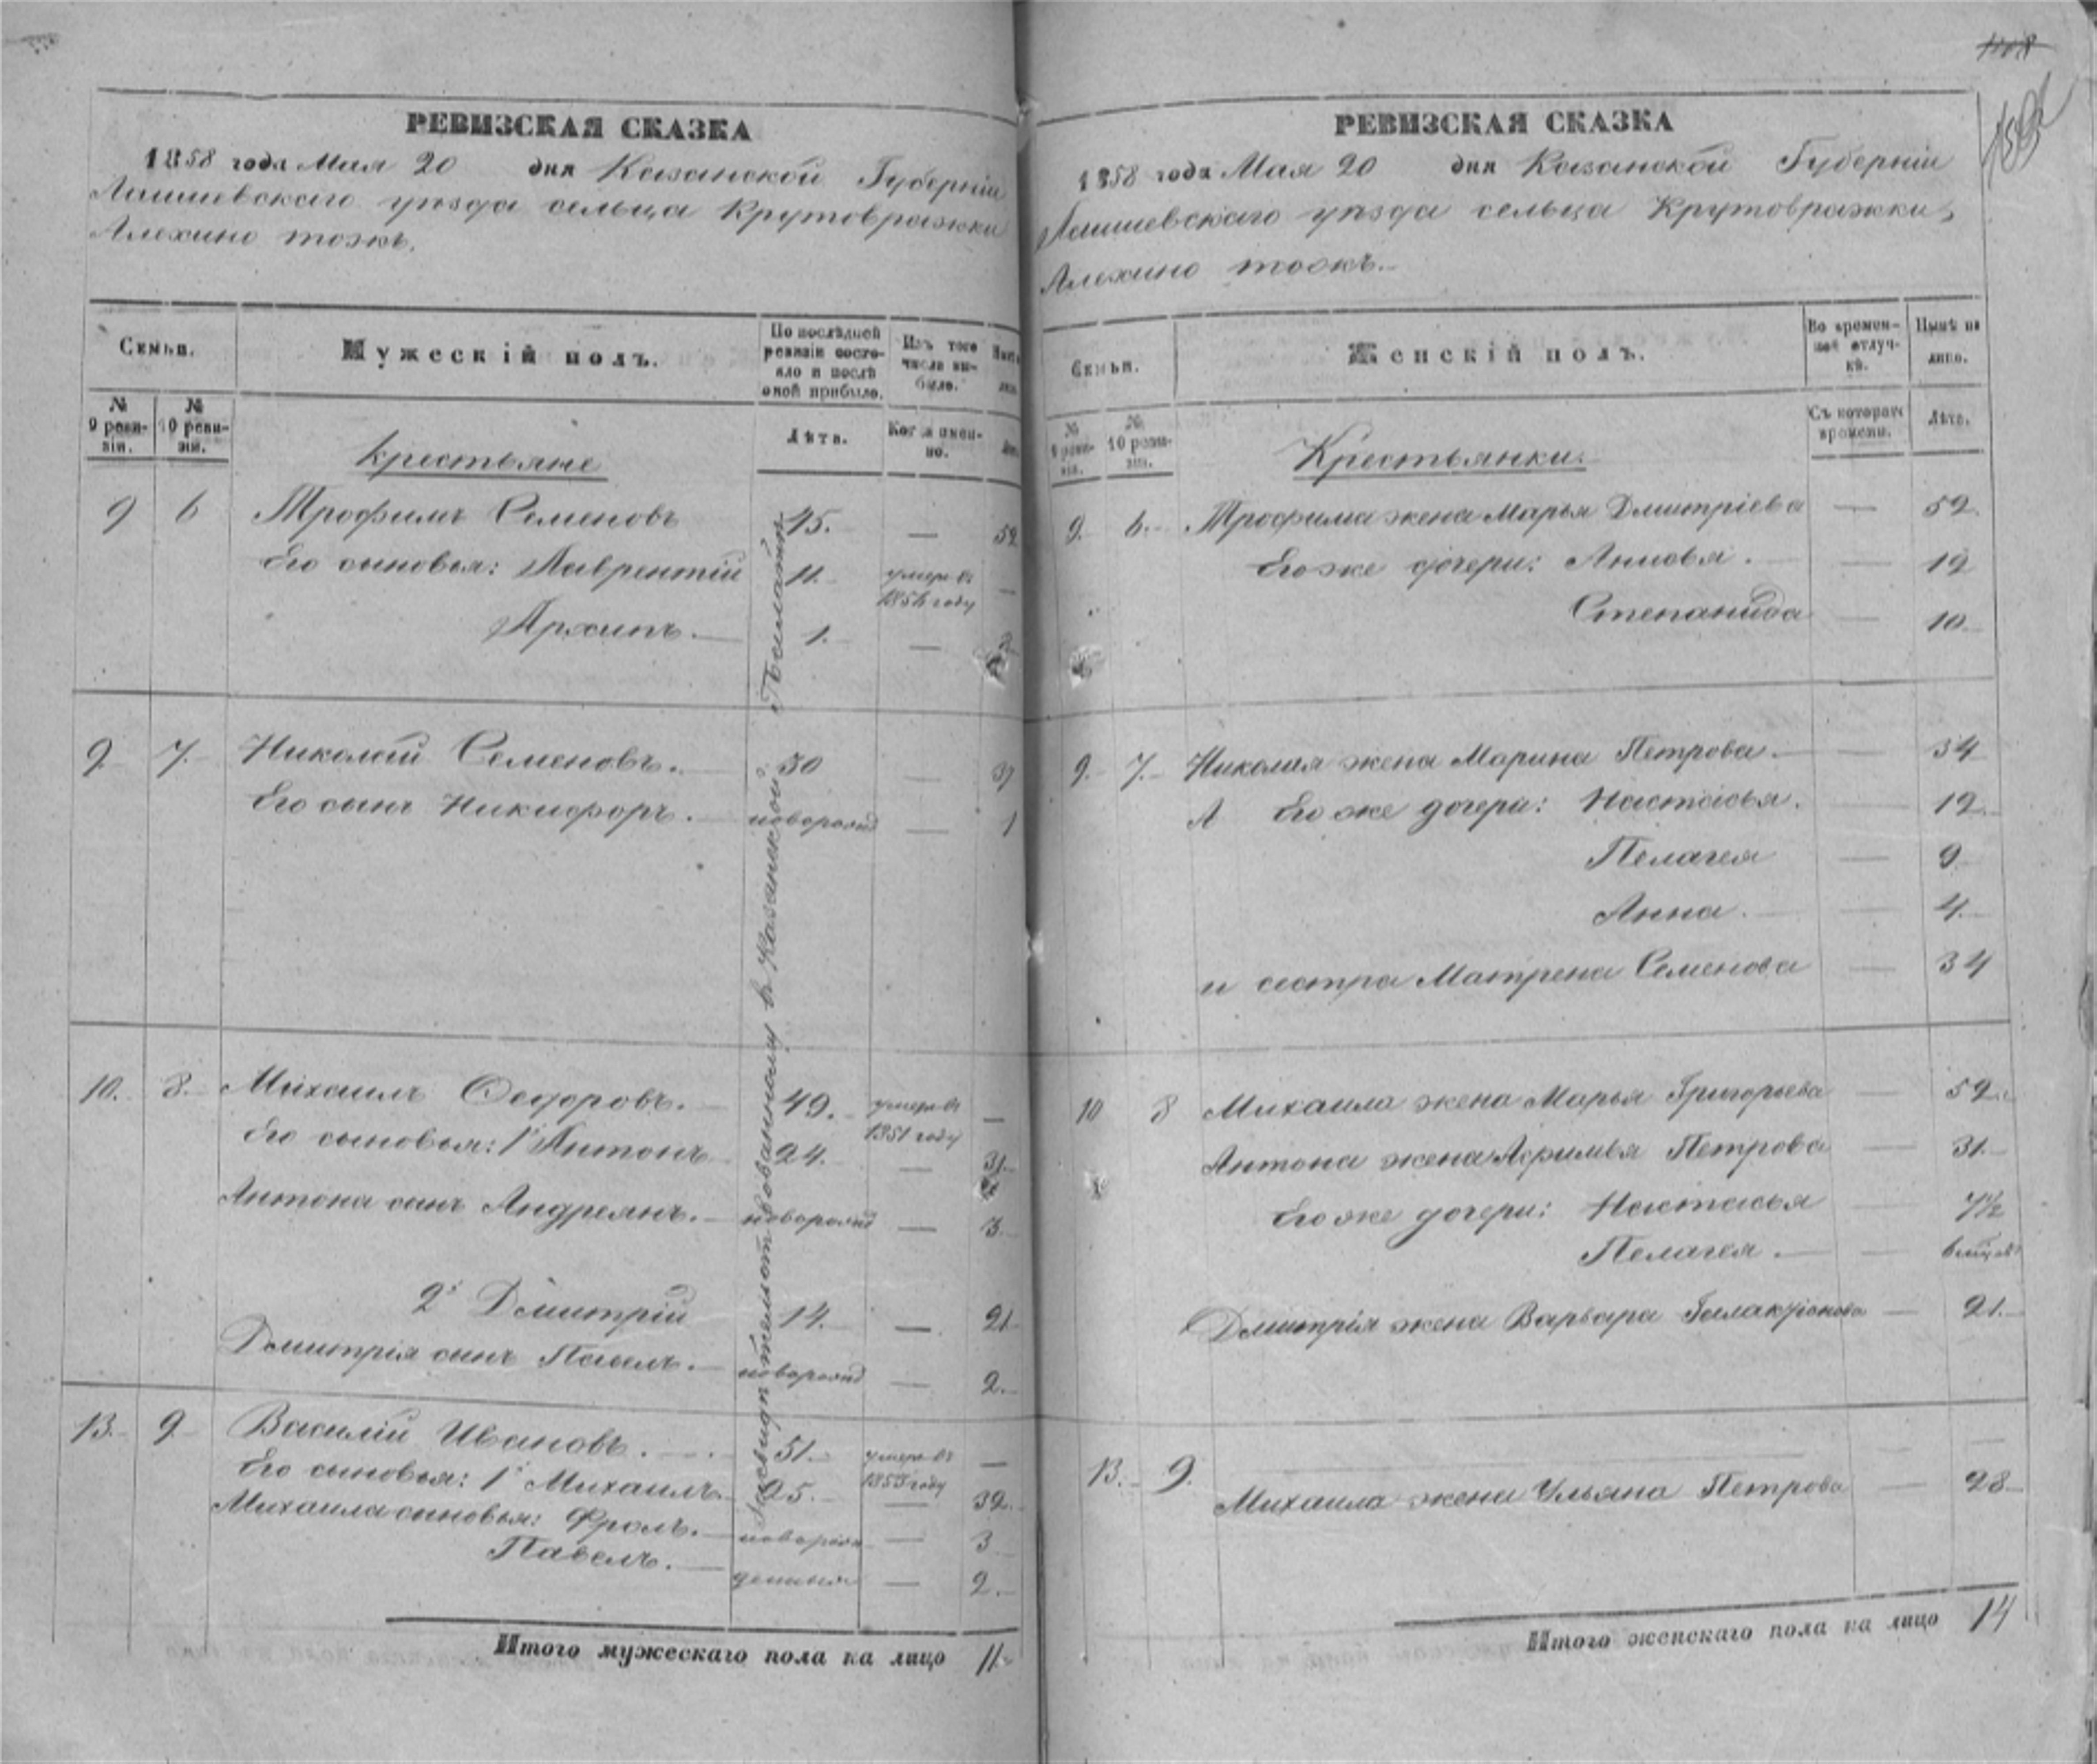 РЕВИЗСКАЯ СКАЗКА
1858 года Мая 20 дня Казанской Губерніи
Лаишевскаго уѣзда сельца Крутовражки
Алехино тожъ.
Семьи.
Мужескій полъ.
По послѣдней ревизіи состояло и послѣ оной прибыло.
Изъ того числа выбыло.
№ 9 ревизіи.
№ 10 ревизіи.
Лѣта.
Когда именно.
Крестьяне
9 6 Трофимъ Семеновъ 45. — 52
Его сыновья: Лаврентій 11. умеръ въ —
1854 году
Архипъ. — 1. —
9 7. Николай Семеновъ. 30 — 37
Его сынъ Никифоръ. новорожд — 1
10. 8. Михаилъ Ѳедоровъ. 42. умеръ въ —
1851 году
Его сыновья: 1й Антонъ 24. — 31.
Антона сынъ Андреянъ. новорожд — 3.
2й Дмитрій 14. — 21
Дмитрія сынъ Павелъ. новорожд — 2.
13. 9 Василій Ивановъ. 51. умеръ въ —
году
Его сыновья: 1й Михаилъ 25. — 32.
Михаила сыновья: Фролъ. новорож — 3
Павелъ. — денныя — 2.
Итого мужескаго пола на лицо 11.
къ Казанской
РЕВИЗСКАЯ СКАЗКА
1858 года Мая 20 дня Казанской Губерніи
Лаишевскаго уѣзда сельца Крутовражки,
Алехино тожъ.
Семьи.
Женскій полъ.
Во временной отлучкѣ.
Нынѣ на лицо.
№ 9 ревизіи.
№ 10 ревизіи.
Съ котораго времени.
Лѣта.
Крестьянки.
9. 6. Трофима жена Марья Дмитріева — 52
Его же дочери: — 12
Степанида — 10
9. 7. Николая жена Марина Петрова. — 34
А Его же дочери: Настасья. — 12
Пелагея — 9
Анна. — 4
и сестра Матрена Семенова — 34
10 8 Михаила жена Марья Григорьева — 52
Антона жена Афимья Петрова — 31.
Его же дочери: Настасья — 7½
Пелагея. —
Дмитрія жена Варвара Галактіонова — 21.
13. 9. Михаила жена Ульяна Петрова — 28
Итого женскаго пола на лицо 14